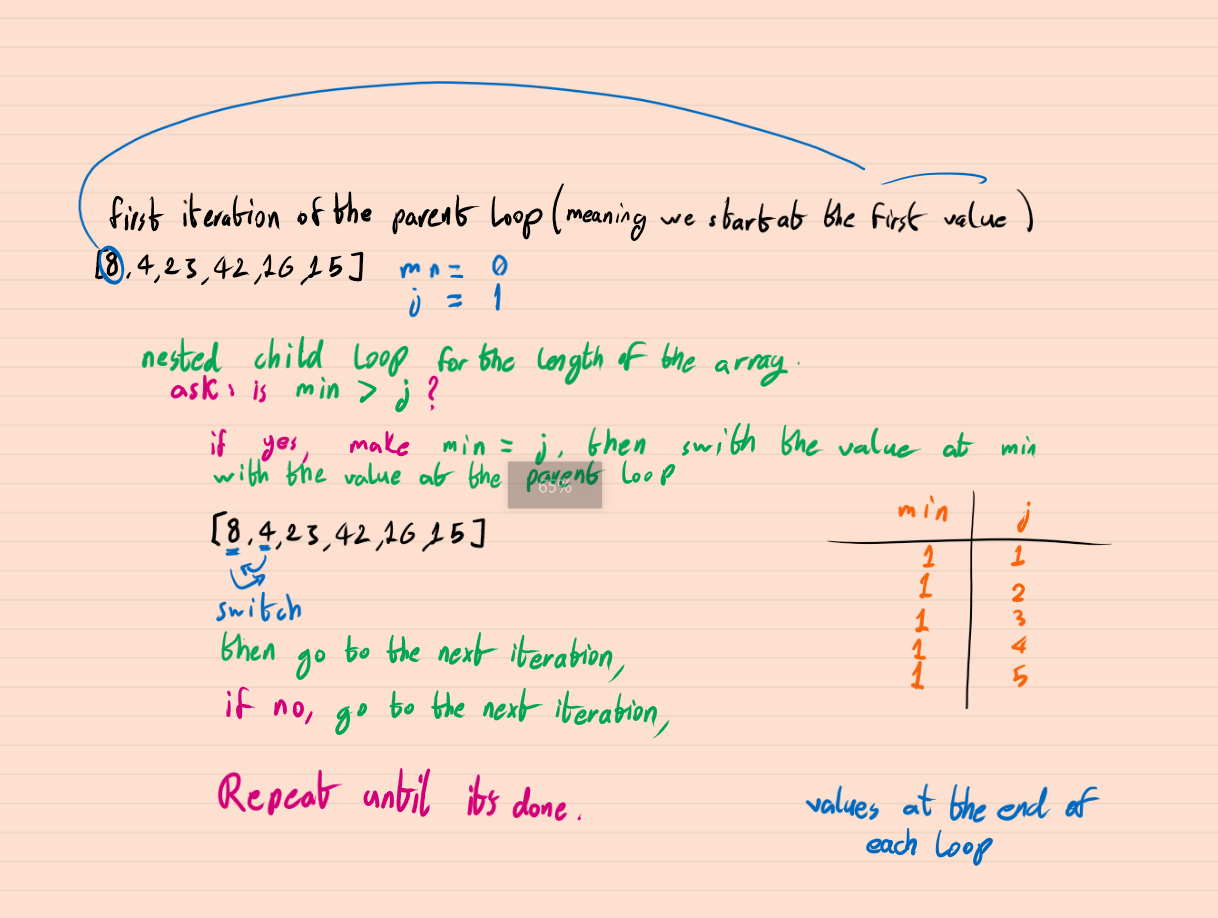 first iteration of the parent loop (meaning we start at the first value)
[8, 4, 23, 42, 16, 15]
mn = 0
j = 1
nested child loop for the length of the array.
ask, is min > j ?
if yes, make min = j, then swith the value at min
with the value at the parent loop
65%
[8, 4, 23, 42, 16, 15]
switch
then go to the next iteration,
if no, go to the next iteration,
Repeat until its done.
min j
1 1
1 2
1 3
1 4
1 5
values at the end of
each loop